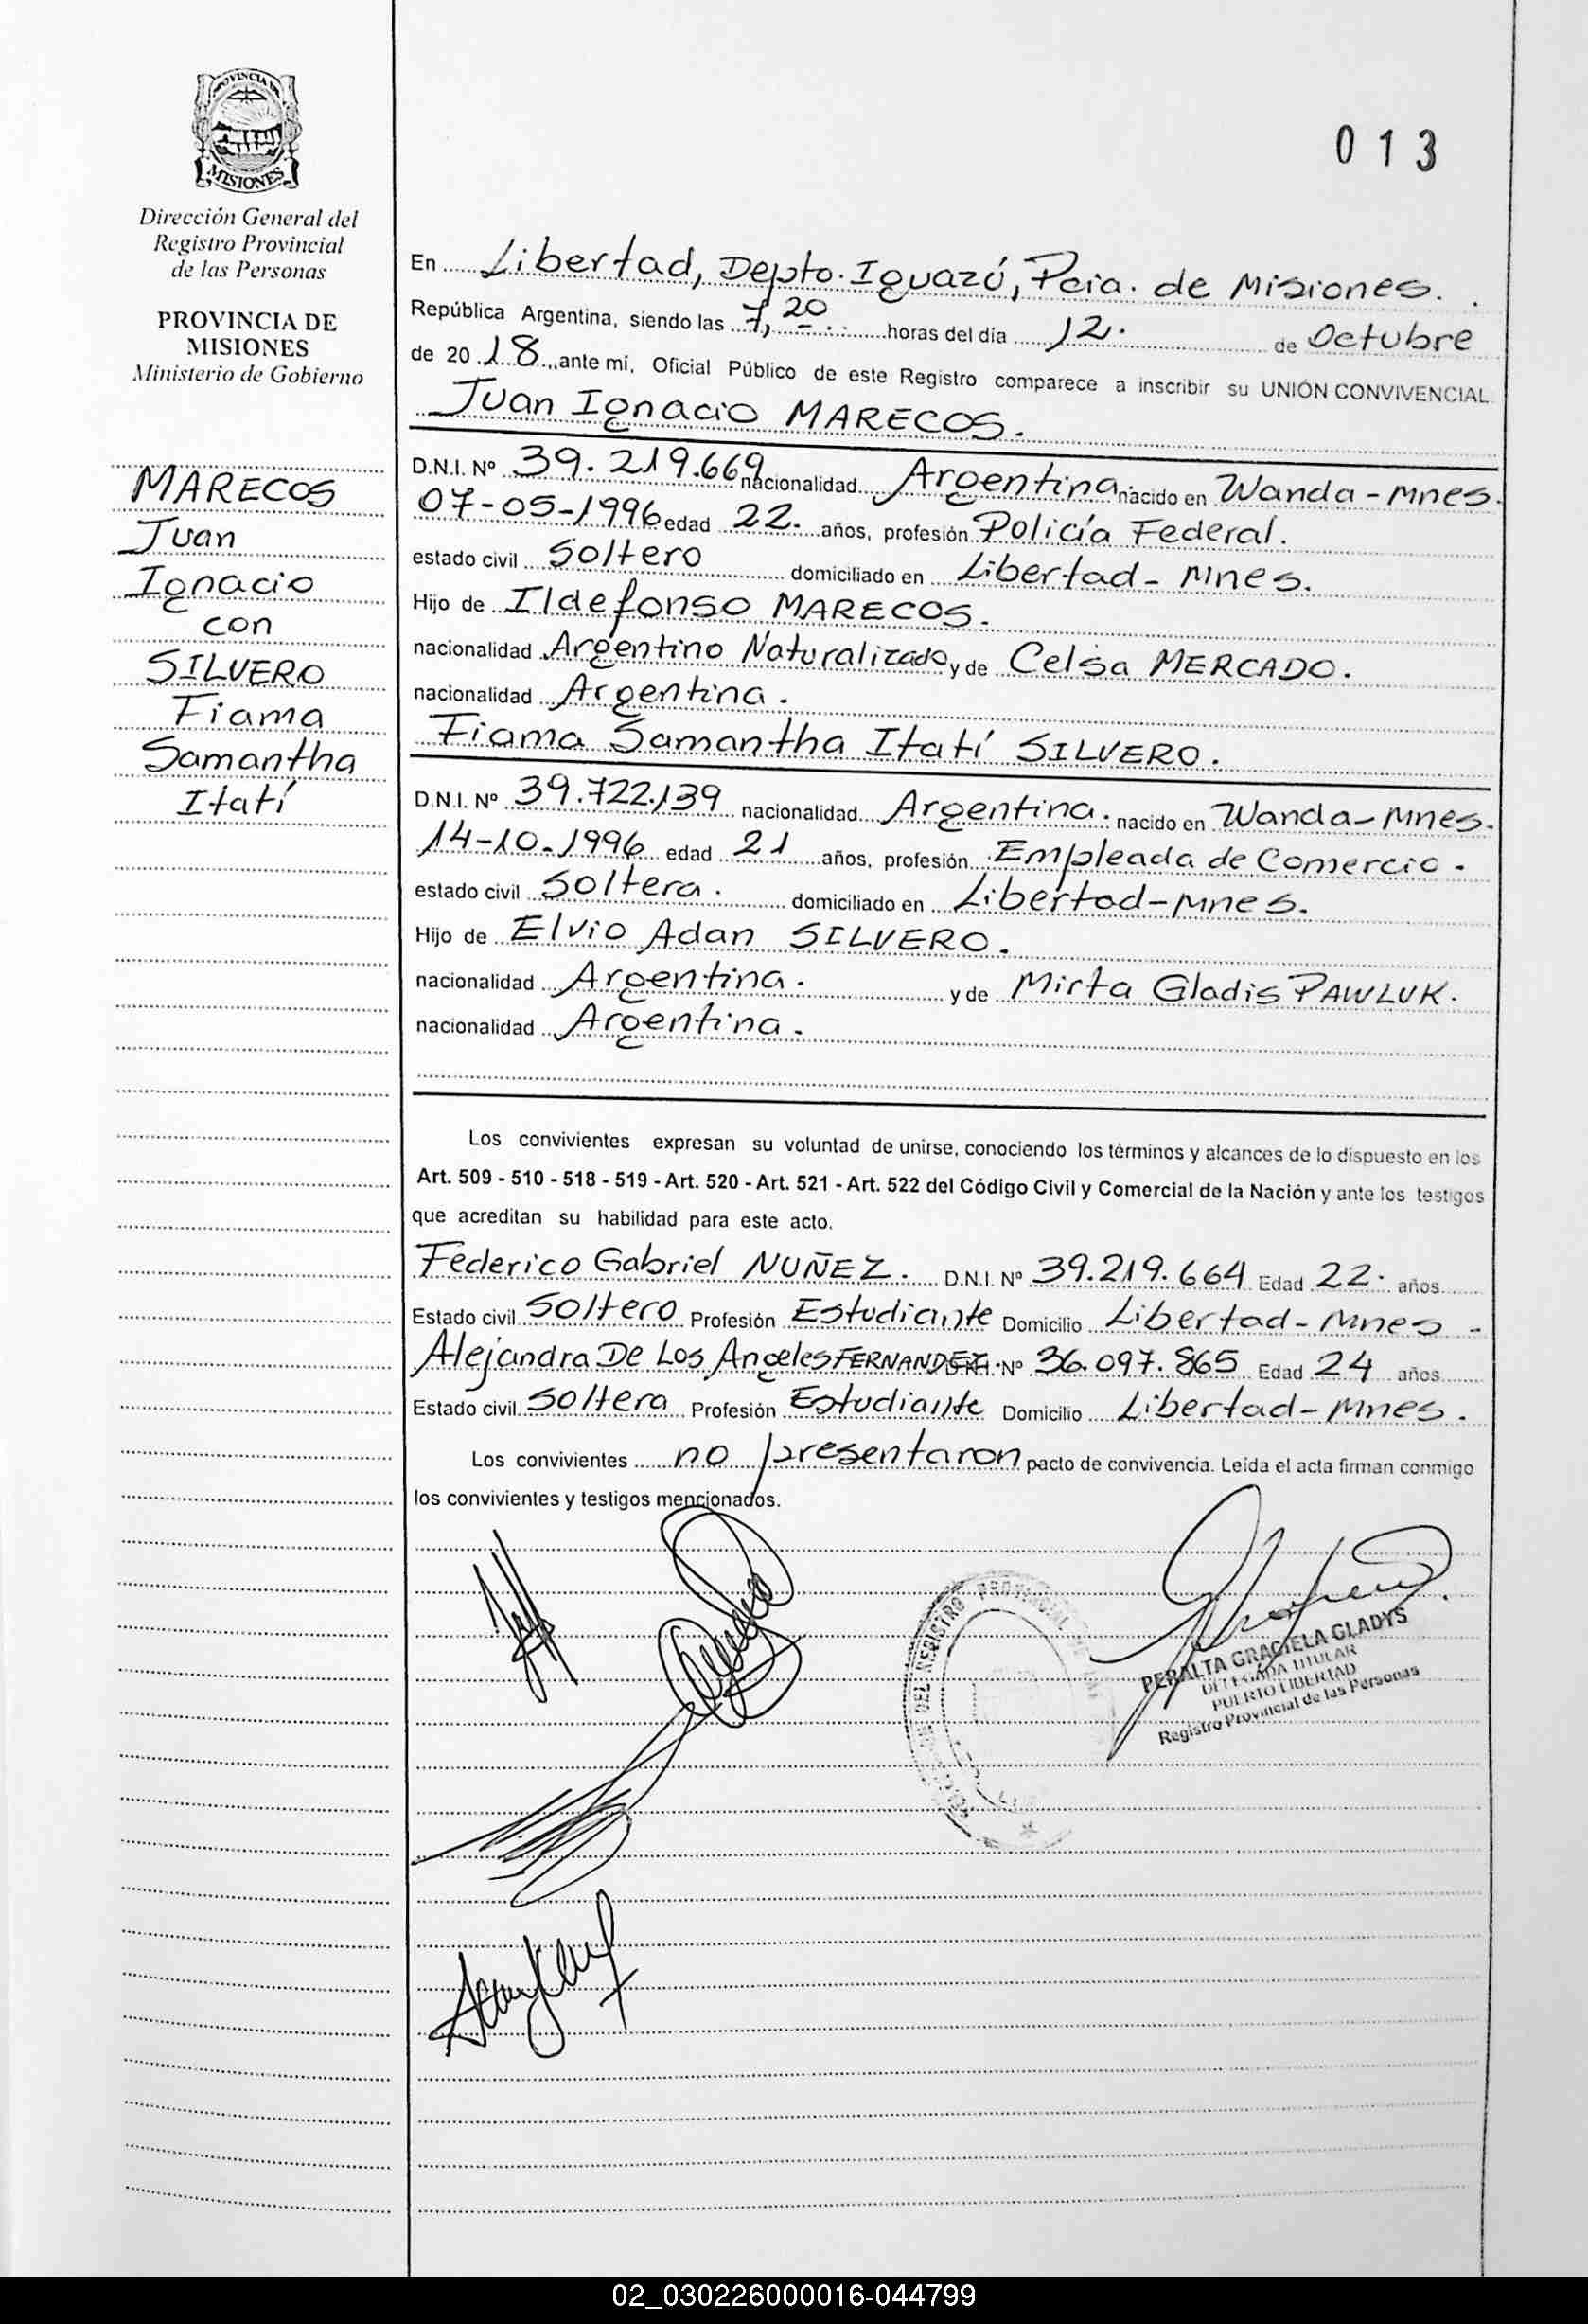 PROVINCIA DE
MISIONES
Dirección General del
Registro Provincial
de las Personas
PROVINCIA DE
MISIONES
Ministerio de Gobierno
MARECOS
Juan
Ignacio
con
SILVERO
Fiama
Samantha
Itatí
013
En Libertad, Depto. Iguazú, Pcia. de Misiones.
República Argentina, siendo las 7,20 horas del día 12. de Octubre
de 2018 ante mí, Oficial Público de este Registro comparece a inscribir su UNIÓN CONVIVENCIAL
Juan Ignacio MARECOS.
D.N.I. Nº 39.219.669 nacionalidad Argentina nacido en Wanda - Mnes.
07-05-1996 edad 22. años, profesión Policía Federal.
estado civil Soltero domiciliado en Libertad - Mnes.
Hijo de Ildefonso MARECOS.
nacionalidad Argentino Naturalizado y de Celsa MERCADO.
nacionalidad Argentina.
Fiama Samantha Itatí SILVERO.
D.N.I. Nº 39.722.139 nacionalidad Argentina. nacido en Wanda - Mnes.
14-10-1996 edad 21 años, profesión Empleada de Comercio.
estado civil Soltera. domiciliado en Libertad - Mnes.
Hijo de Elvio Adan SILVERO.
nacionalidad Argentina. y de Mirta Gladis PAWLUK.
nacionalidad Argentina.
Los convivientes expresan su voluntad de unirse, conociendo los términos y alcances de lo dispuesto en los
Art. 509 - 510 - 518 - 519 - Art. 520 - Art. 521 - Art. 522 del Código Civil y Comercial de la Nación y ante los testigos
que acreditan su habilidad para este acto.
Federico Gabriel NUÑEZ. D.N.I. Nº 39.219.664 Edad 22. años
Estado civil Soltero Profesión Estudiante Domicilio Libertad - Mnes -
Alejandra De Los Angeles FERNANDEZ. D.N.I. Nº 36.097.865 Edad 24 años
Estado civil Soltera Profesión Estudiante Domicilio Libertad - Mnes.
Los convivientes no presentaron pacto de convivencia. Leída el acta firman conmigo
los convivientes y testigos mencionados.
DEL REGISTRO PROVINCIAL
PERALTA GRACIELA GLADYS
DELEGADA TITULAR
PUERTO LIBERTAD
Registro Provincial de las Personas
02_030226000016-044799